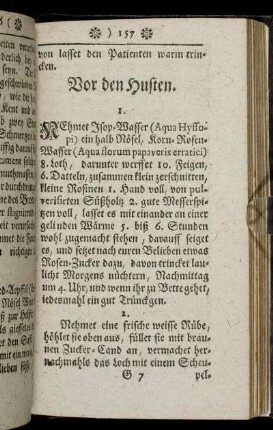 157
von lasset den Patienten warm trin-
cken.
Vor den Husten.
1.
NEhmet Isop-Wasser (Aqua Hysso-
pi) ein halb Nösel, Korn-Rosen-
Wasser (Aqua florum papaveris erratici)
8. Loth, darunter werffet 10. Feigen,
6. Datteln, zusammen klein zerschnitten,
kleine Rosinen 1. Hand voll, von pul-
verisirten Süßholtz 2. gute Messerspi-
tzen voll, lasset es mit einander an einer
gelinden Wärme 5. biß 6. Stunden
wohl zugemacht stehen, darauff seiget
es, und setzet nach euren Belieben etwas
Rosen-Zucker dazu, davon trincket lau-
licht Morgens nüchtern, Nachmittag
um 4. Uhr, und wenn ihr zu Bette gehet,
iedesmahl ein gut Trünckgen.
2.
Nehmet eine frische weisse Rübe,
höhlet sie oben aus, füllet sie mit brau-
nen Zucker-Cand an, vermachet her-
nachmahls das Loch mit einem Scheu-
G 7 pel-